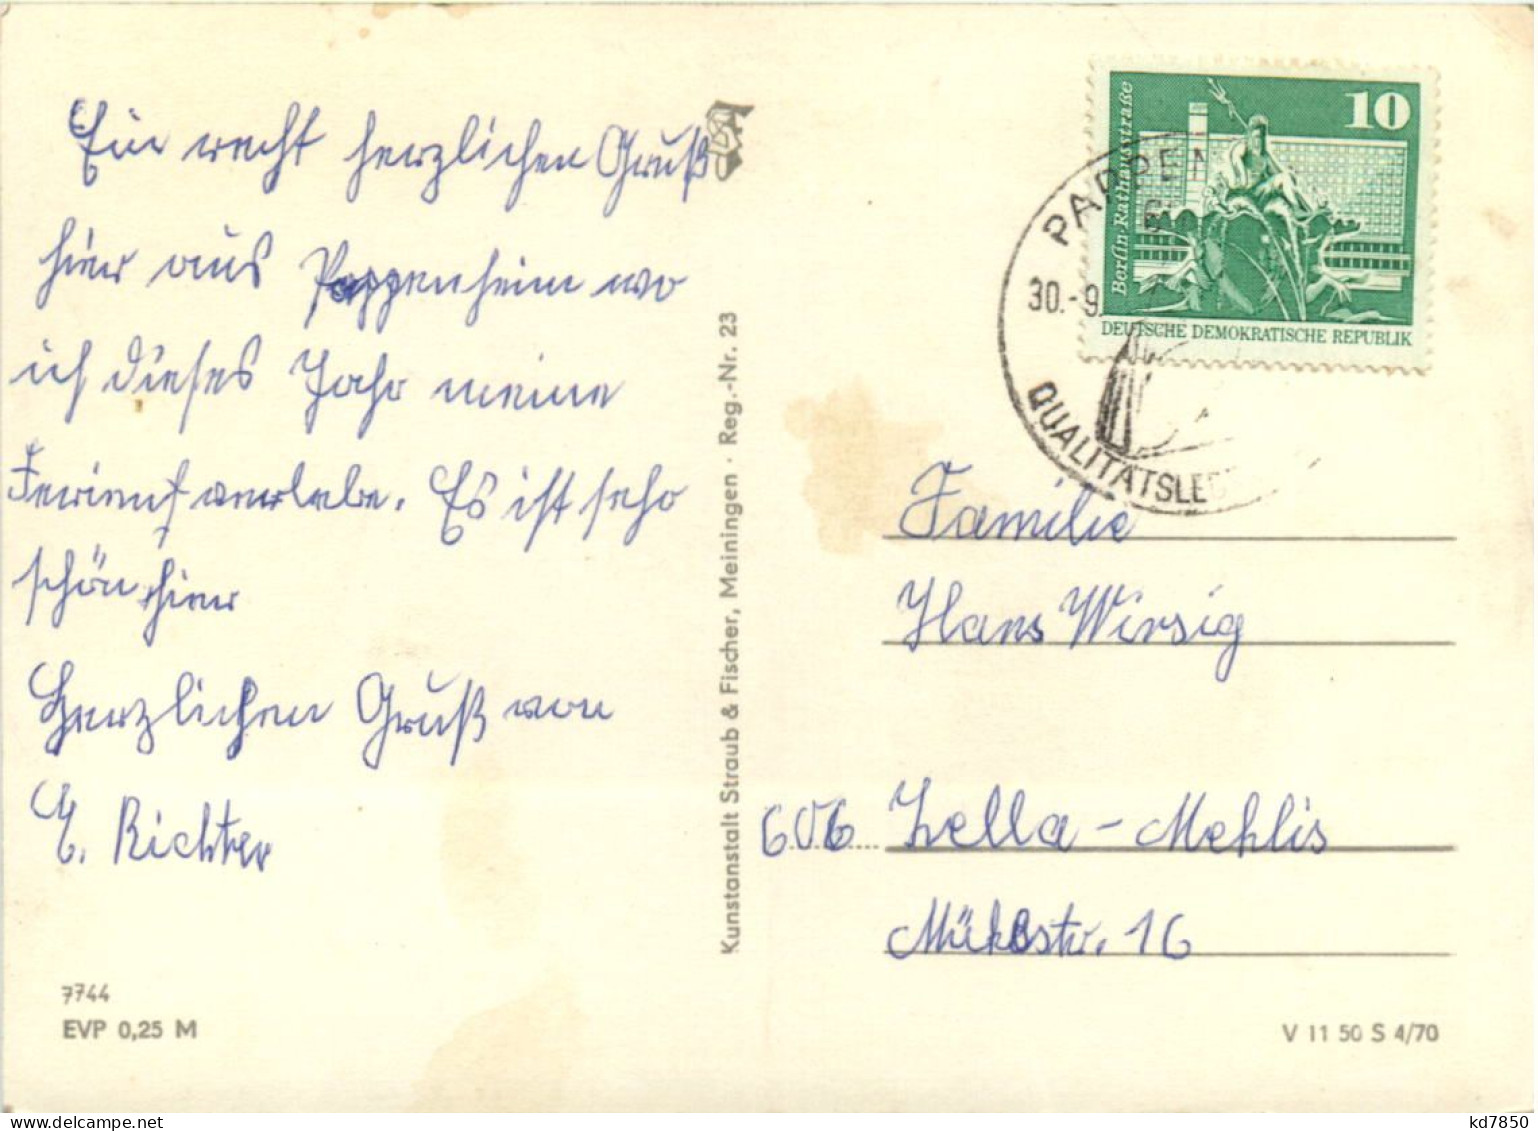 Ein recht herzlichen Gruß
hier aus Pappenheim wo
ich dieses Jahr meine
Ferien verlebe. Es ist sehr
schön hier
Herzlichen Gruß von
E. Richter
7744
EVP 0,25 M
Kunstanstalt Straub & Fischer, Meiningen · Reg.-Nr. 23
10
Berlin·Rathausstraße
DEUTSCHE DEMOKRATISCHE REPUBLIK
30.-9.
Familie
Hans Wirsig
606 Zella-Mehlis
16
V 11 50 S 4/70
kd7850